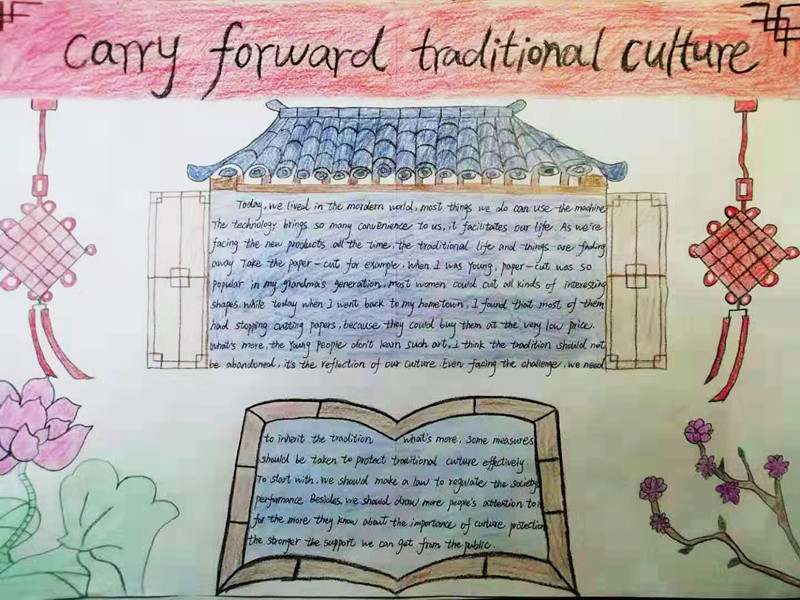 Carry forward traditional culture
Today, we lived in the mordern world, most things we do can use the machine
The technology brings so many convenience to us, it facilitates our life. As we're
facing the new products all the time, the traditional life and things are fading
away Take the paper-cut for example, when I was young, paper-cut was so
popular in my grandma's generation, most women could cut all kinds of interesting
shapes. while today when I went back to my hometown, I found that most of them
had stopping cutting papers, because they could buy them at the very low price.
what's more, the young people don't learn such art, I think the tradition should not
be abandoned, it's the reflection of our culture. Even facing the challenge, we need
to inherit the tradition what's more, some measures
should be taken to protect traditional culture effectively.
To start with, we should make a law to regulate the society
performance. Besides, we should draw more people's attention to
for the more they know about the importance of culture protection
the stronger the support we can get from the public.